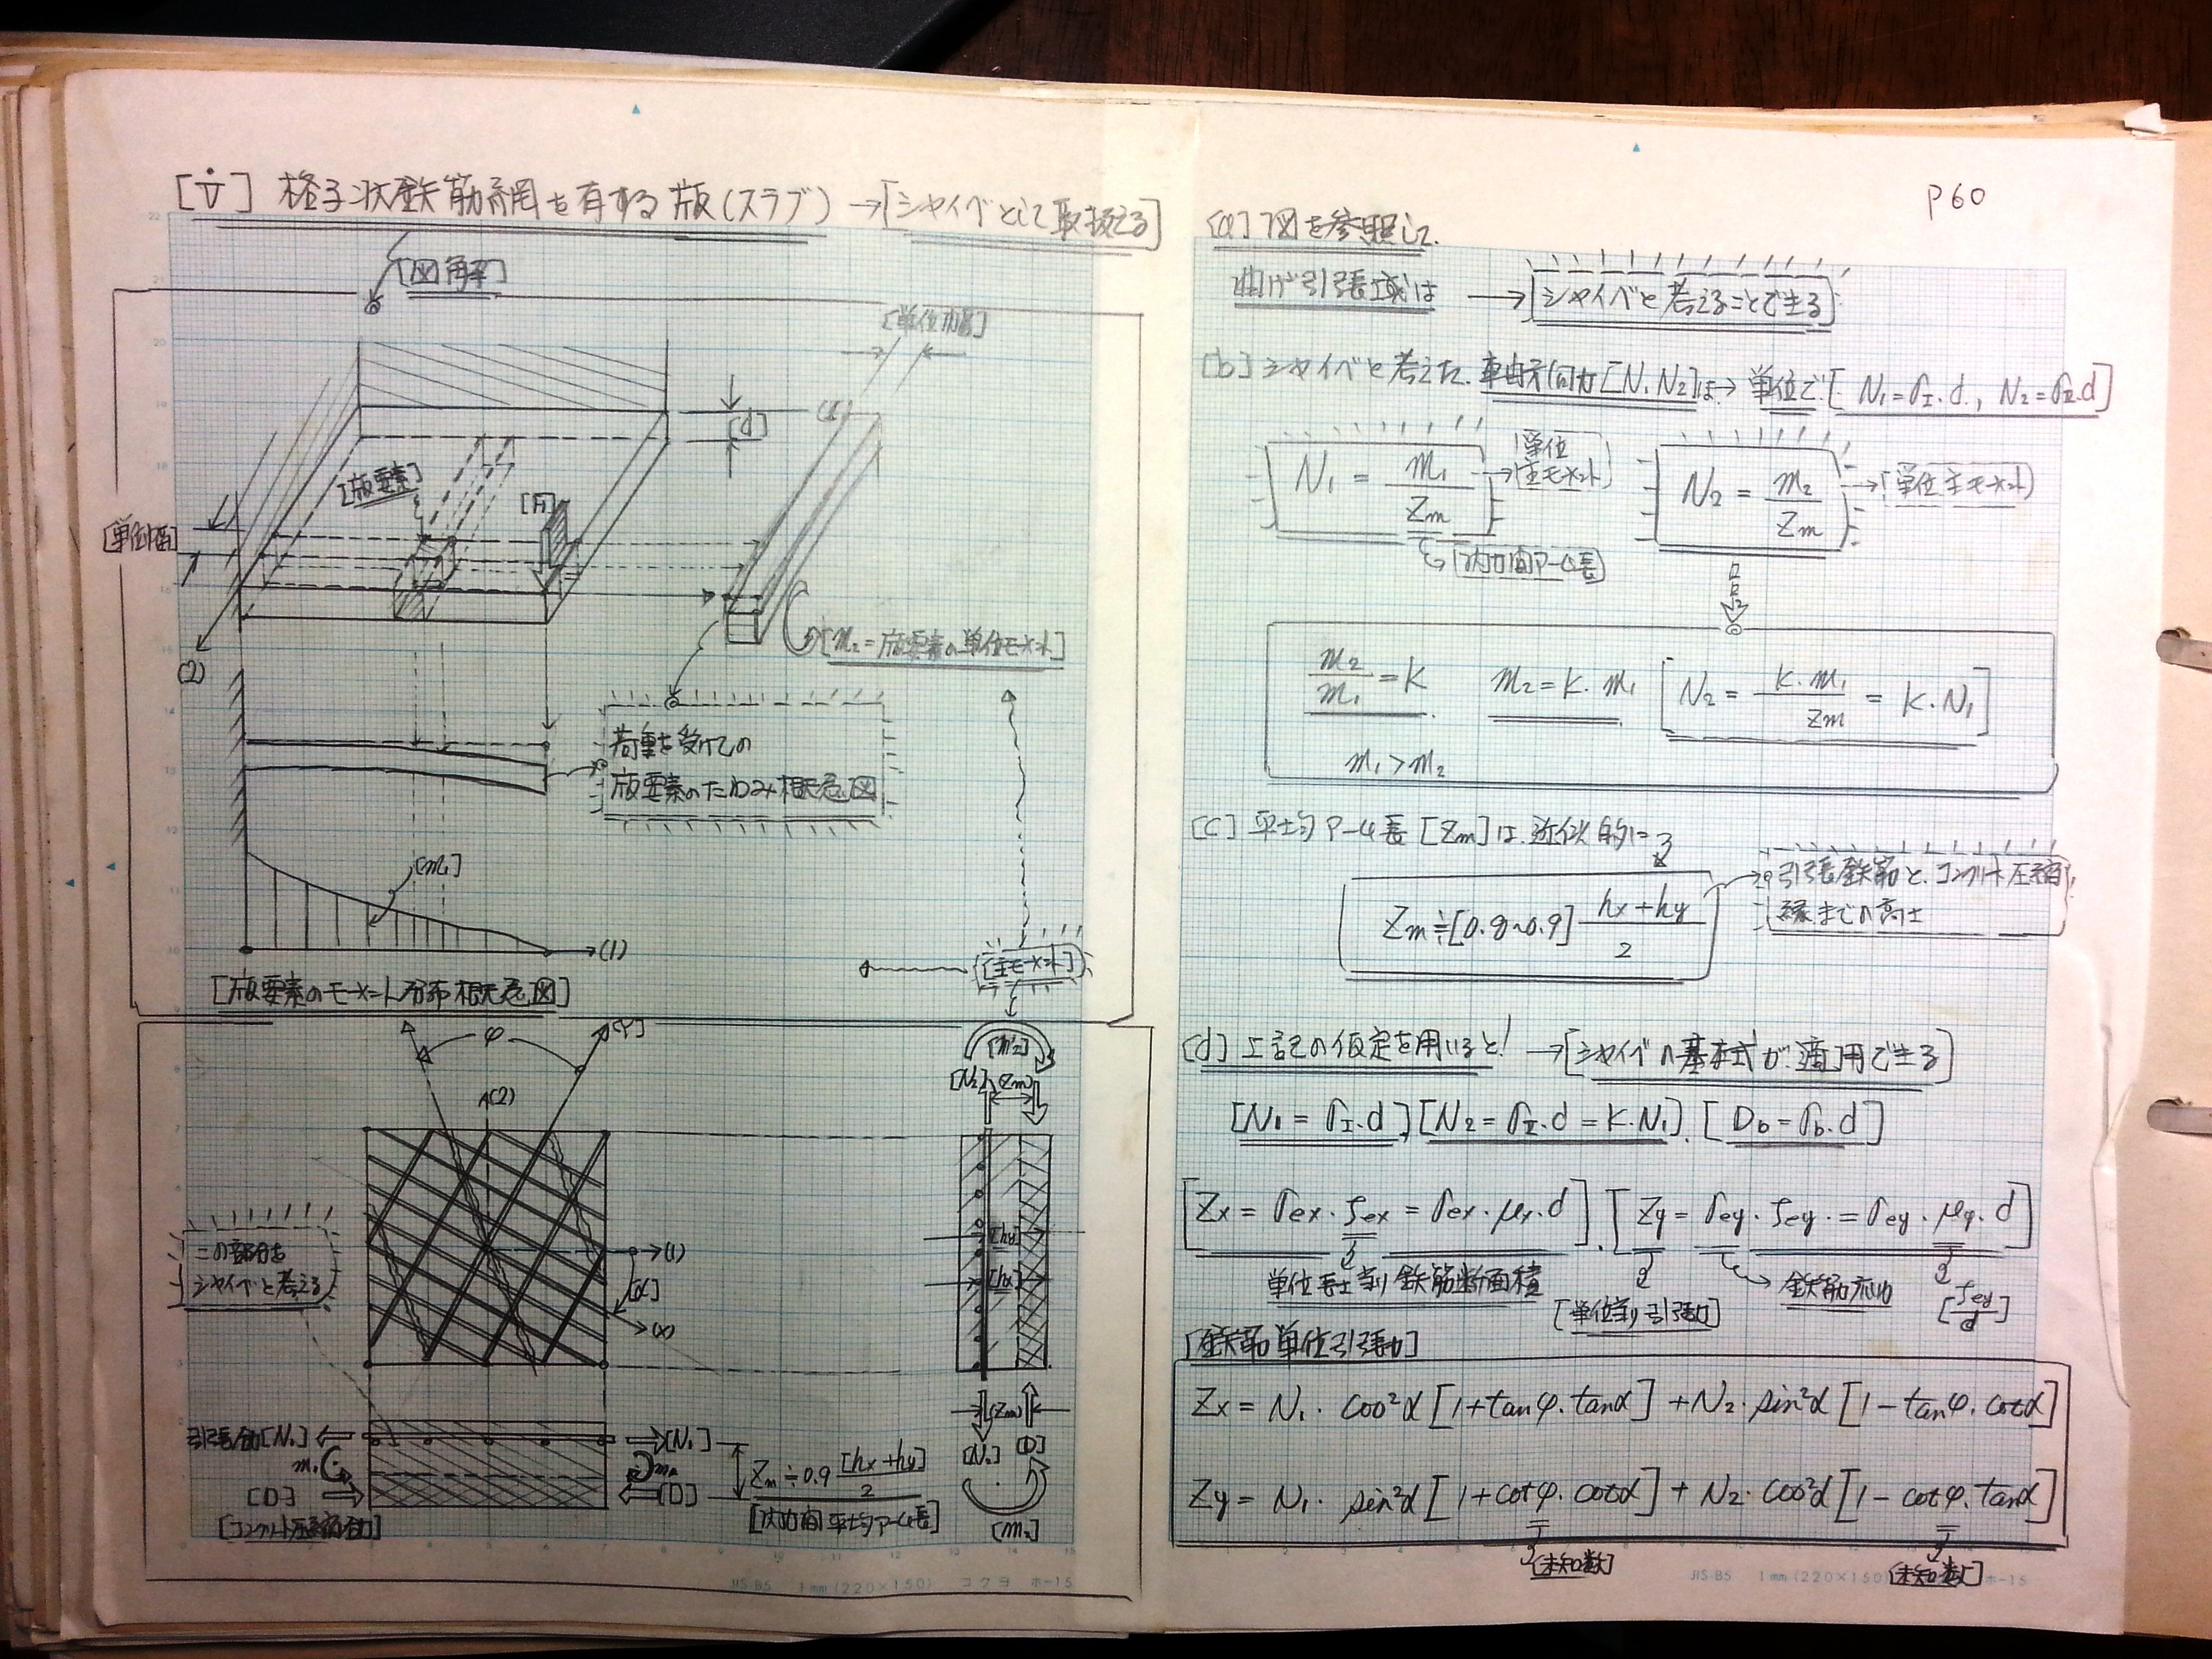 [V] 格子状鉄筋網を有する版(スラブ) → [シャイベとして取扱える]
[図解]
[単位巾]
[d]
[版要素]
[単位幅]
(2)
[m₂=版要素の単位モーメント]
荷重を受けての
版要素のたわみ概念図
[m₁]
(1)
[版要素のモーメント分布概念図]
[主モーメント]
φ
[Y]
(2)
[m₂]
[N₂] [Zm]
この部分を
シャイベと考える
(1)
[α]
(x)
[hy]
[hx]
引張鉄筋[N₁]
[N₁]
m₁
m₁
[D]
[D]
[コンクリート圧縮力]
Zm≒0.9 [hx+hy]/2
[内力間平均アーム長]
[Zm]
[N₂] [D]
[m₂]
JIS-B5 1mm(220×150) コクヨ ホ-15
P60
[a] 下図を参照して.
曲げ引張域は → [シャイベと考えることできる]
[b] シャイベと考えた. 軸方向力[N₁ N₂]は→ 単位で[N₁=σI.d., N₂=σII.d]
N₁ = m₁/Zm → [単位主モーメント]
N₂ = m₂/Zm → [単位主モーメント]
[内力間アーム長]
m₂/m₁=K m₂=K.m₁ [N₂=K.m₁/Zm=K.N₁]
m₁>m₂
[c] 平均アーム長[Zm]は.近似的に
Zm≒[0.8~0.9] hx+hy/2
引張鉄筋と.コンクリート圧縮
縁までの高さ
[d] 上記の仮定を用いると! → [シャイベの基本式が.適用できる]
[N₁=σI.d] [N₂=σII.d=K.N₁]. [Db=σb.d]
[Zx=σex.fex=σex.μx.d]. [Zy=σey.fey.=σey.μy.d]
単位長さ当り鉄筋断面積
[単位当り引張力]
鉄筋応力
[fey/d]
[鉄筋単位引張力]
Zx = N₁. cos²α [1+tanφ.tanα] +N₂.sin²α [1-tanφ.cotα]
Zy = N₁. sin²α [1+cotφ.cotα] + N₂.cos²α [1-cotφ.tanα]
[未知数]
[未知数]
JIS-B5 1mm(220×150) ホ-15